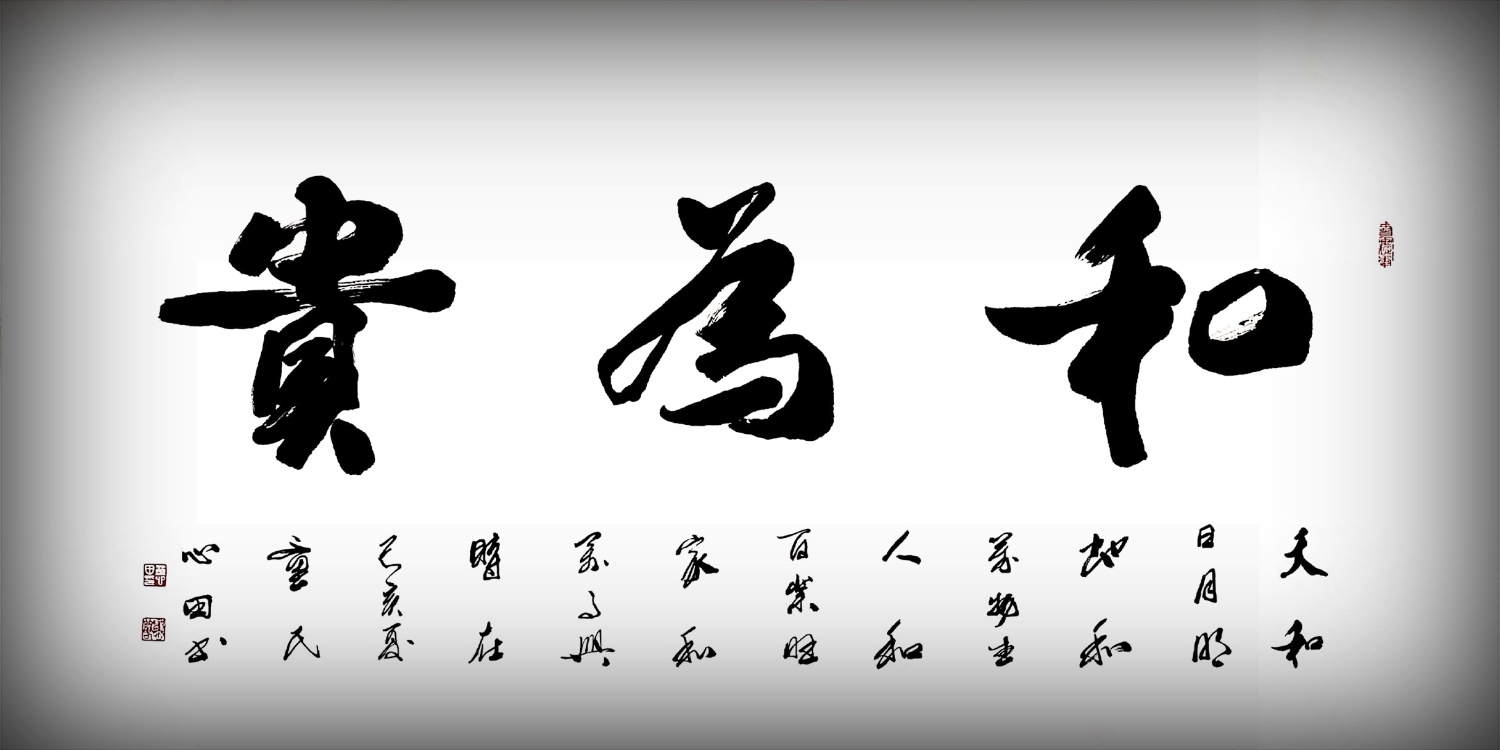 和為貴
天和
日月明
地和
萬物生
人和
百業旺
家和
萬事興
時在
己亥夏
童民
心田书